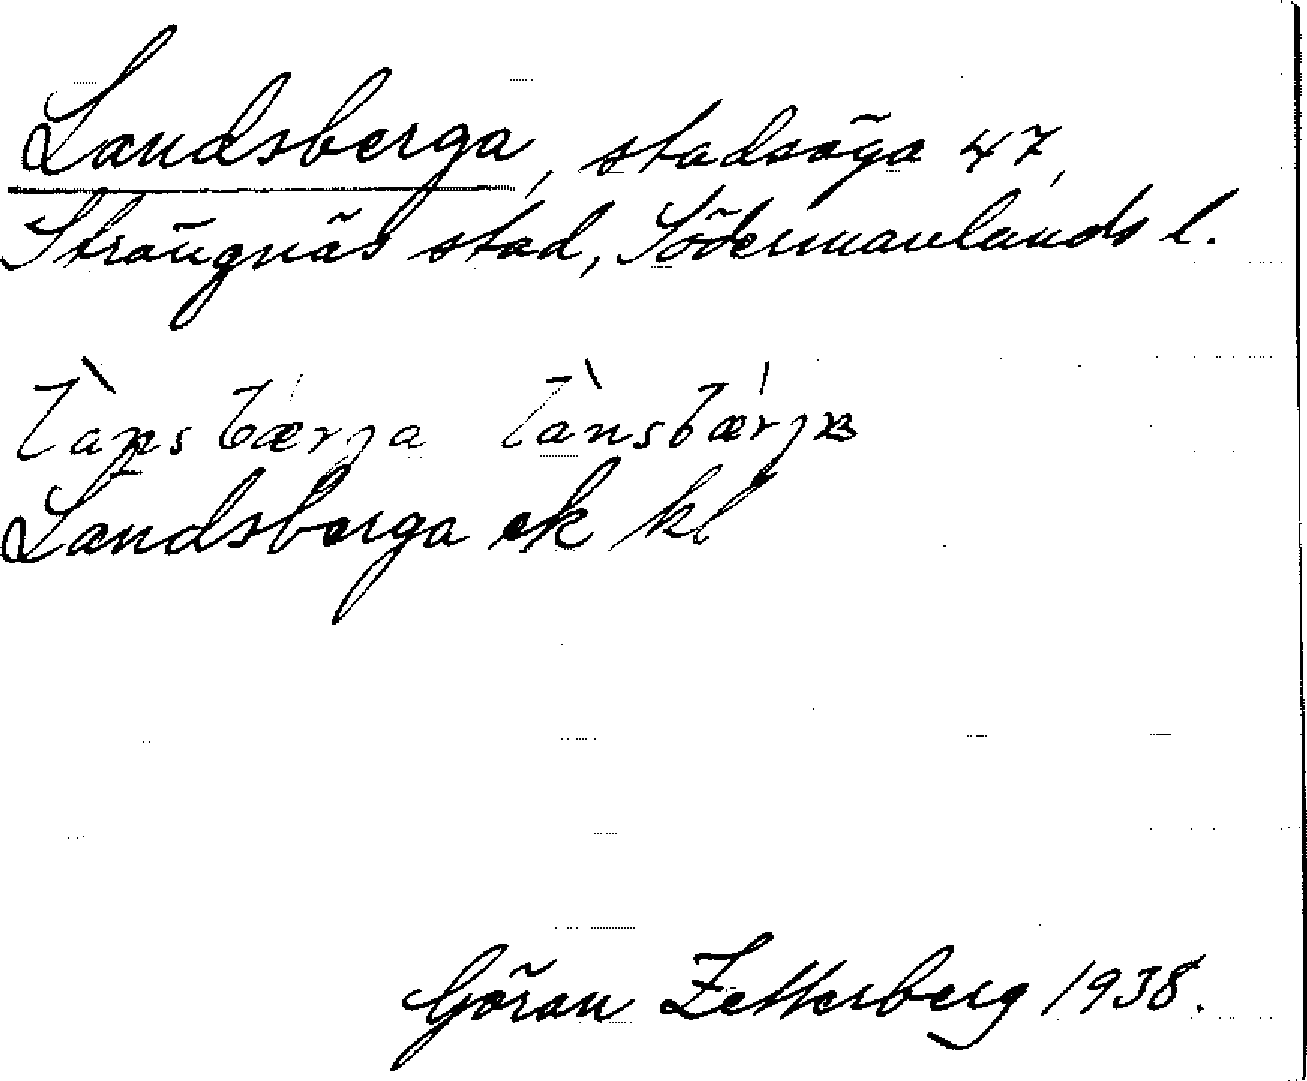 Landsberga, stadsäga 47,
Strängnäs stad, Södermanlands l.
Landsberga ek kl
Göran Zetterberg 1938.